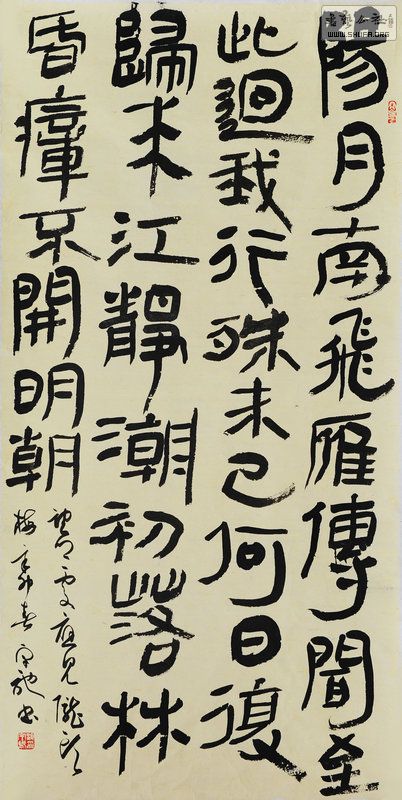 書藝公社
WWW.SHUFA.ORG
陽月南飛雁傳聞至
此迴我行殊未已何日復
歸來江靜潮初落林
昏瘴不開明朝
望鄉處應見隴頭
梅 辛卯春 書